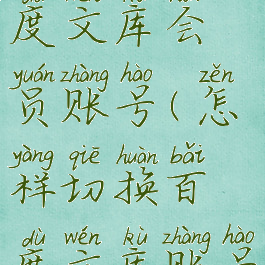 度文库会
yuán zhàng hào zěn
员账号(怎
yàng qiē huàn bǎi
样切换百
dù wén kù zhàng hào
度文库账号